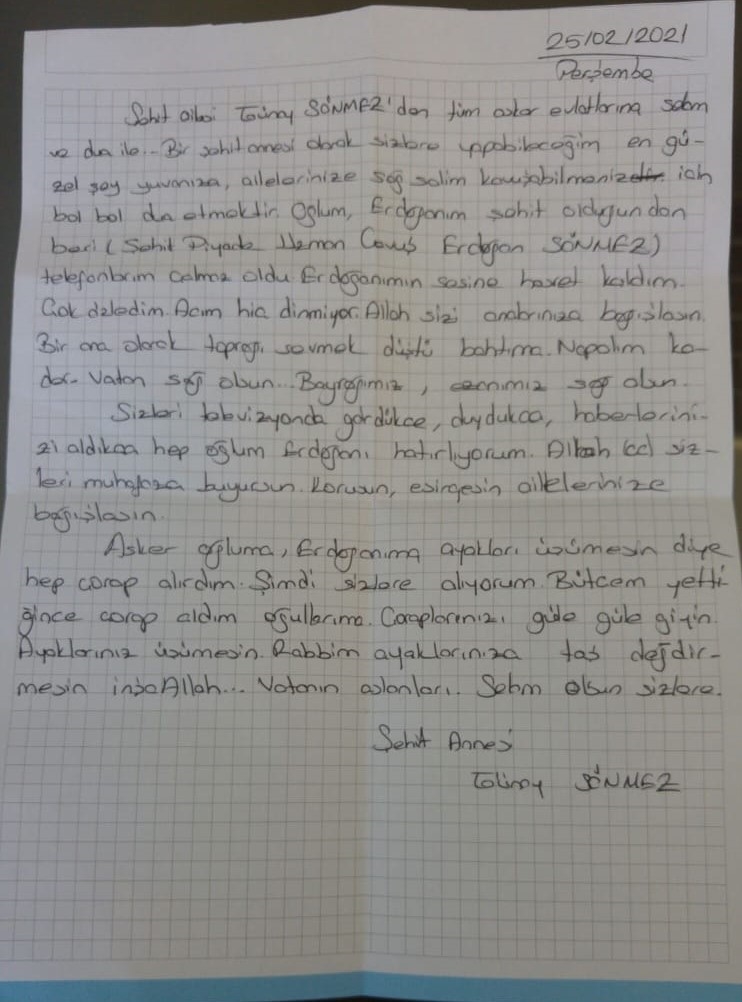 25/02/2021
Perşembe
Şehit ailesi SÖNMEZ'den tüm asker evlatlarına selam
ve dua ile.. Bir şehit annesi olarak sizlere yapabileceğim en gü-
zel şey yuvanıza, ailelerinize sağ salim kavuşabilmeniz için
bol bol dua etmektir. Oğlum, Erdoğanım şehit olduğundan
beri (Şehit Piyade Uzman Çavuş Erdoğan SÖNMEZ)
telefonlarım çalmaz oldu Erdoğanımın sesine hasret kaldım.
Çok özledim. Acım hiç dinmiyor. Allah sizi analarınıza bağışlasın.
Bir ana olarak toprağı sevmek düştü bahtıma. Napalım ka-
der. Vatan sağ olsun... Bayrağımız, sağ olsun.
Sizleri televizyonda gördükçe, duydukça, haberlerini-
zi aldıkça hep oğlum Erdoğanı hatırlıyorum. Allah (cc) siz-
leri muhafaza buyursun. Korusun, esirgesin ailelerinize
bağışlasın.
Asker oğluma, Erdoğanıma ayakları üşümesin diye
hep çorap alırdım. Şimdi sizlere alıyorum. Bütçem yetti-
ğince çorap aldım oğullarıma. Çoraplarınızı güle güle giyin.
Ayaklarınız üşümesin. Rabbim ayaklarınıza taş değdir-
mesin inşaAllah... Vatanın aslanları.. Selam olsun sizlere.
Şehit Annesi
SÖNMEZ